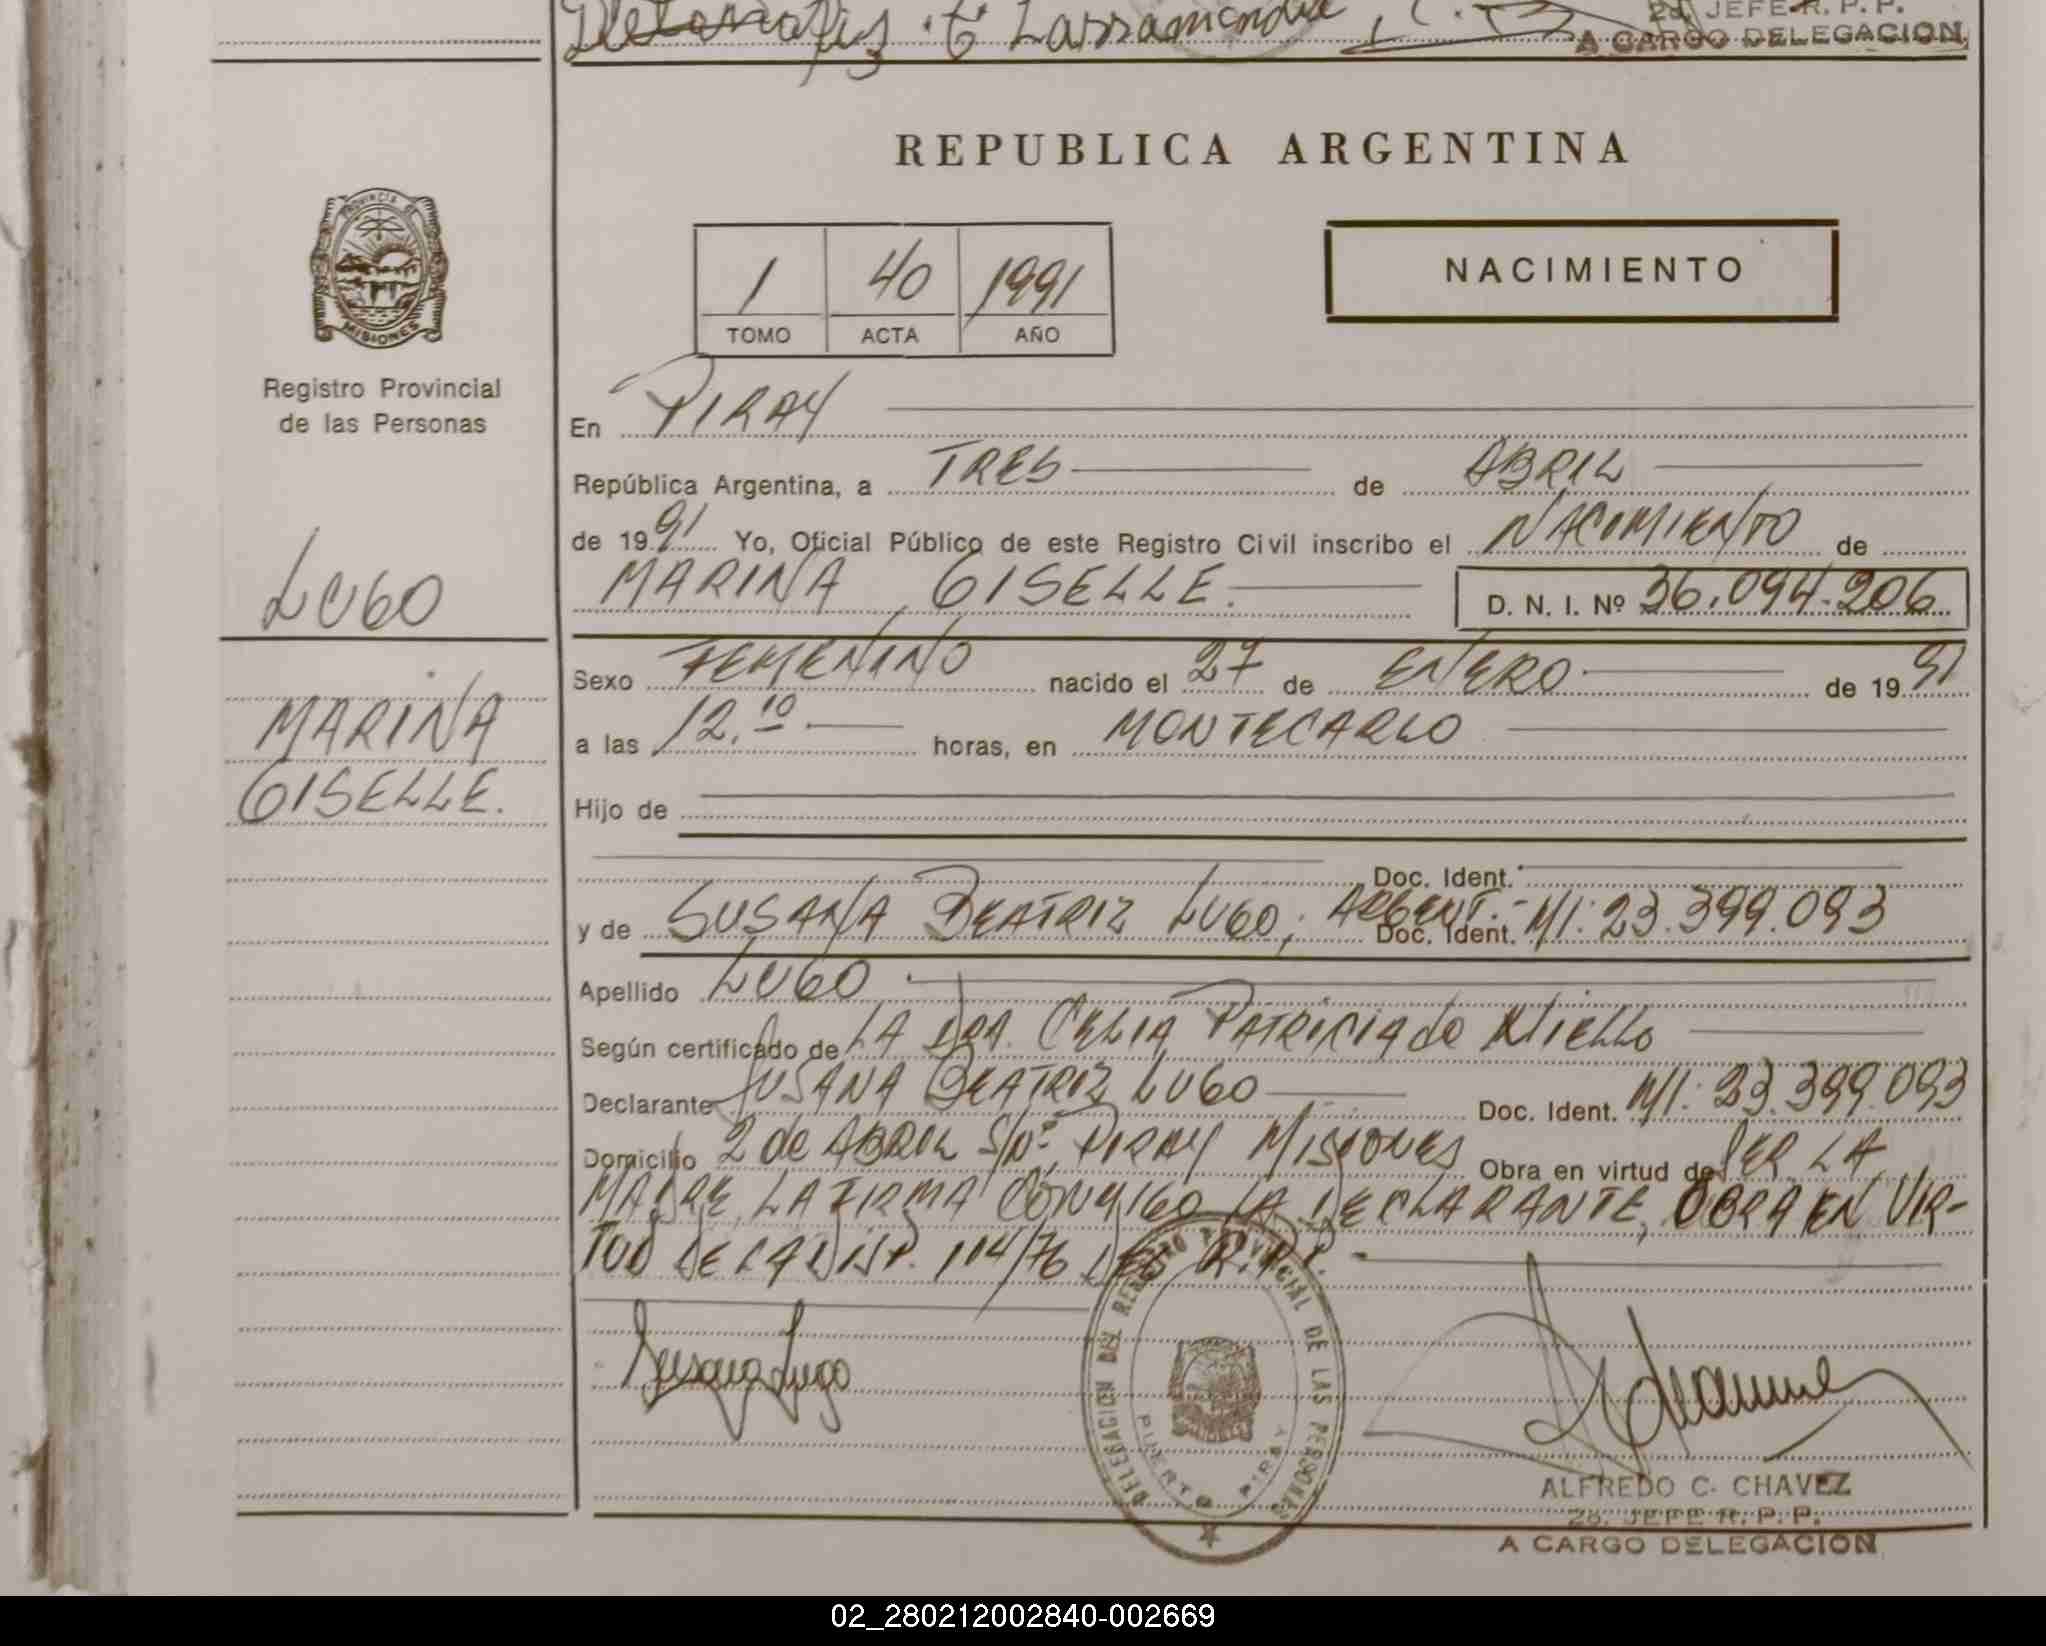 Larramendia
2do. JEFE R. P. P.
A CARGO DELEGACION
REPUBLICA ARGENTINA
PROVINCIA DE
MISIONES
Registro Provincial
de las Personas
LUGO
MARINA
GISELLE.
1 40 1991
TOMO ACTA AÑO
NACIMIENTO
En PIRAY
República Argentina, a TRES de ABRIL
de 1991 Yo, Oficial Público de este Registro Civil inscribo el NACIMIENTO de
MARINA GISELLE. D. N. I. Nº 36.094.206
Sexo FEMENINO nacido el 27 de ENERO de 1991
a las 12.10 horas, en MONTECARLO
Hijo de
Doc. Ident.
y de SUSANA BEATRIZ LUGO; ARGENT.- Doc. Ident. MI: 23.399.093
Apellido LUGO
Según certificado de LA DRA. CELIA PATRICIA de
Declarante SUSANA BEATRIZ LUGO Doc. Ident. MI: 23.399.093
Domicilio 2 de ABRIL S/Nº PIRAY MISIONES Obra en virtud de SER LA
MADRE, LA FIRMA CONMIGO LA DECLARANTE, OBRA EN VIR-
TUD DE LA DISP. 114/76 DEL R.P.P.
Susana Lugo
DELEGACION DEL REGISTRO PROVINCIAL DE LAS PERSONAS
PUERTO PIRAY
ALFREDO C. CHAVEZ
2do. JEFE R. P. P.
A CARGO DELEGACION
02_280212002840-002669